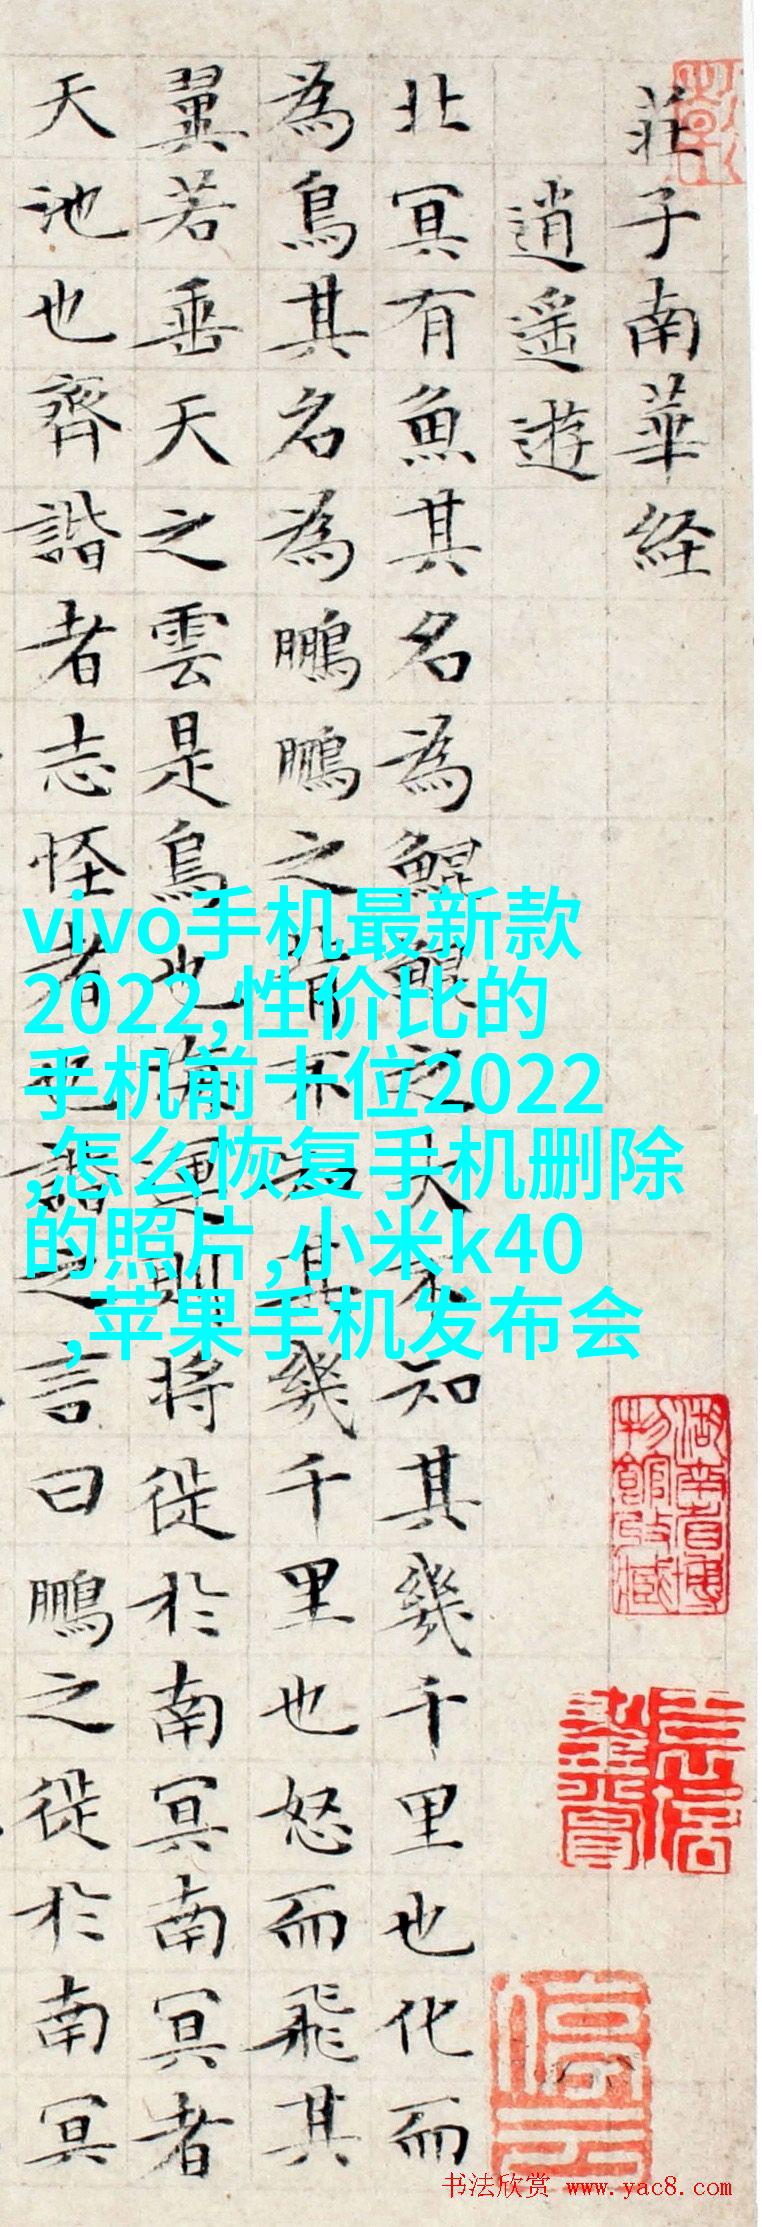 莊子南華経
逍遥遊
北冥有魚其名為鯤鯤之大不知其幾千里也化而
為鳥其名為鵬鵬之背不知其幾千里也怒而飛其
翼若垂天之雲是鳥也海運則将徙於南冥南冥者
天池也齊諧者志怪者也諧之言曰鵬之徙於南冥
vivo手机最新款
2022,性价比的
手机前十位2022
,怎么恢复手机删除
的照片,小米k40
,苹果手机发布会
湖南省博
物館收藏
书法欣赏 www.yac8.com